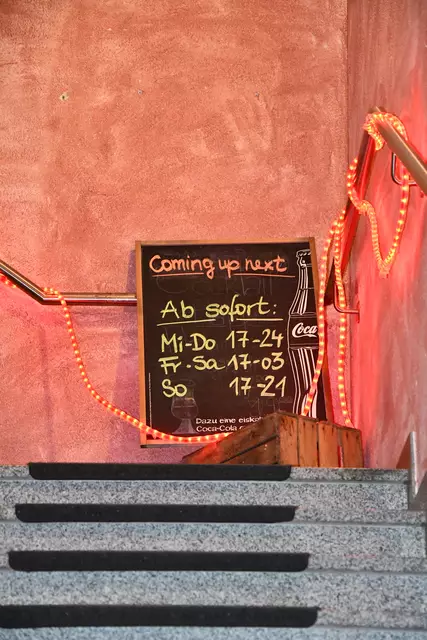 Coming up next
Ab sofort:
Mi-Do 17-24
Fr-Sa 17-03
So 17-21
Coca
Dazu eine eiska
Coca-Cola